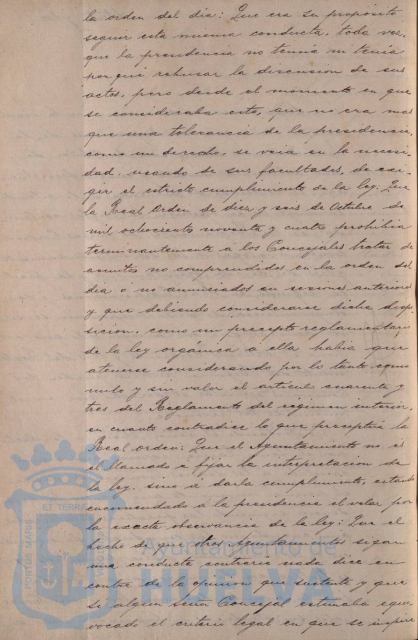 la orden del dia: Que era su propósito
seguir esta misma conducta, toda vez,
que la presidencia no temia ni tenia
por qué rehusar la discusion de sus
actos, pero desde el momento en que
se consideraba esto, que no era mas
que una tolerancia de la presidencia
como un derecho, se veia en la necesi-
dad, usando de sus facultades, de exi-
gir el estricto cumplimiento de la ley. Que
la Real Orden de diez y seis de Octubre de
mil ochocientos noventa y cuatro prohibia
terminantemente a los Concejales tratar de
asuntos no comprendidos en la orden del
dia ó no anunciados en sesiones anteriores
y que debiendo considerarse dicha dispo-
sicion, como un precepto reglamentario
de la ley orgánica a ella habia que
atenerse considerando por lo tanto como
nulo y sin valor el articulo cuarenta y
tres del Reglamento del régimen interior,
en cuanto contradice lo que preceptúa la
Real orden: Que el Ayuntamiento no es
el llamado á fijar la interpretacion de
la ley, sino á darla cumplimiento, estando
encomendado á la presidencia el velar por
la exacta observancia de la ley: Que el
hecho de que otros Ayuntamientos sigan
una conducta contraria nada dice en
contra de la opinion que sustenta y que
se algun Señor Concejal estimaba equi-
vocado el criterio legal en que se inspira
PORTUS MARIS ET TERRAE
Ayuntamiento de
HUELVA